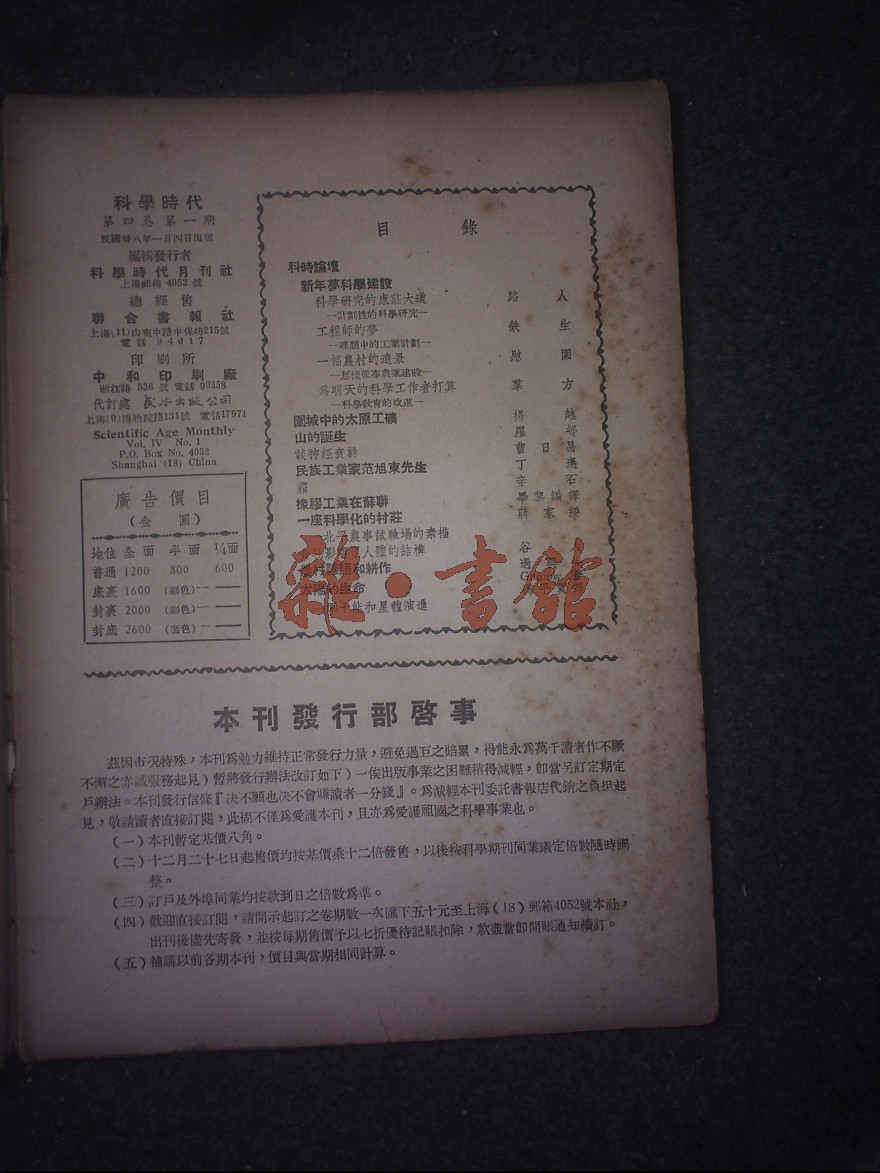 科學時代
第四卷第一期
民國卅八年一月四日出版
編輯發行者
科學時代月刊社
上海郵箱 4052 號
總經售
聯合書報社
上海(11)山東中路中保坊215號
電話 94017
印刷所
中和印刷廠
浙江路 536 號 電話 90358
代訂處 民本出版公司
上海(0)博物院路131號 電話17971
Scientific Age Monthly
Vol. IV No. 1
P.O. Box No. 4052
Shanghai (18) China
廣告價目
(金圓)
地位 全面 半面 ¼面
普通 1200 800 600
底裏 1600 (彩色)
封裏 2000 (彩色)
封底 2600 (套色)
目錄
科時論壇
新年夢科學建設
科學研究的康莊大道 路人
—計劃性的科學研究—
工程師的夢 鉄生
—理想中的工業計劃—
一幅農村的遠景 慰園
—怎樣從事農業建設—
爲明天的科學工作者打算 羣方
—科學教育的改進—
圍城中的太原工礦 楊越
山的誕生 羅
談神經衰弱 曹日昌
民族工業家范旭東先生 丁
霜 辛石
橡膠工業在蘇聯 畢黎編譯
一座科學化的村莊 蔣家
北平農事試驗場的素描
人體的結構 谷
和耕作 過
的生命
和星體演進
雜·書館
本刊發行部啓事
茲因市况特殊，本刊爲勉力維持正常發行力量，避免過巨之賠累，得能永爲萬千讀者作不厭
不懈之赤誠服務起見)暫將發行辦法改訂如下)一俟出版事業之困難稍得減輕，卽當另訂定期定
戶辦法。本刊發行信條『決不願也決不會賺讀者一分錢』。爲減輕本刊委託書報店代銷之負担起
見，敬請讀者直接訂閱，此固不僅爲愛護本刊，且亦爲愛護祖國之科學事業也。
(一)本刊暫定基價八角。
(二)十二月二十七日起售價均按基價乘十二倍發售，以後按科學期刊同業議定倍數隨時調
整。
(三)訂戶及外埠同業均按款到日之倍數爲準。
(四)歡迎直接訂閱，請開示起訂之卷期數一次匯下五十元至上海(18)郵箱4052號本社，
出刊後儘先寄發，並按每期售價予以七折優待記賬扣除，款盡當卽開賬通知續訂。
(五)補購以前各期本刊，價目與當期相同計算。